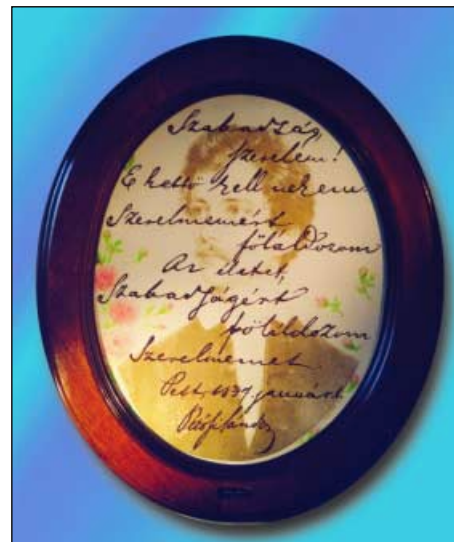 Szabadság,
szerelem!
E kettő kell nekem.
Szerelmemért
föláldozom
Az életet,
Szabadságért
föláldozom
Szerelmemet.
Pest, január
Petőfi Sándor